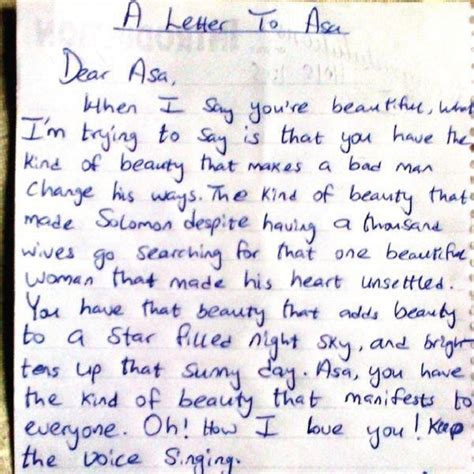 A Letter To Asa
Dear Asa,
When I say you're beautiful, what
I'm trying to say is that you have the
kind of beauty that makes a bad man
change his ways. The kind of beauty that
made Solomon despite having a thousand
wives go searching for that one beautiful
woman that made his heart unsettled.
You have that beauty that adds beauty
to a star filled night sky, and brigh-
tens up that sunny day. Asa, you have
the kind of beauty that manifests to
everyone. Oh! How I love you! Keep
the voice singing.